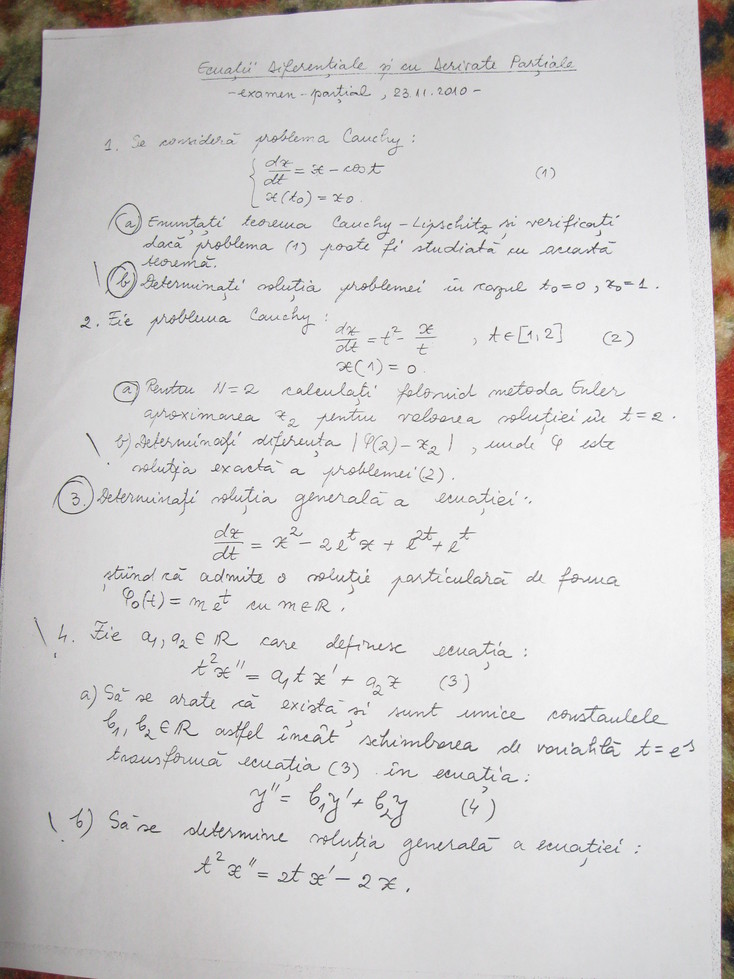 Ecuații Diferențiale și cu Derivate Parțiale
- examen - parțial, 23.11.2010 -
1. Se consideră problema Cauchy:
dx/dt = x - cos t
x(t₀) = x₀. (1)
a) Enunțați teorema Cauchy-Lipschitz și verificați
dacă problema (1) poate fi studiată cu această
teoremă.
b) Determinați soluția problemei în cazul t₀=0, x₀=1.
2. Fie problema Cauchy:
dx/dt = t² - x/t, t∈[1,2] (2)
x(1) = 0.
a) Pentru N=2 calculați folosind metoda Euler
aproximarea x₂ pentru valoarea soluției în t=2.
b) Determinați diferența |φ(2) - x₂|, unde φ este
soluția exactă a problemei (2).
3. Determinați soluția generală a ecuației:
dx/dt = x² - 2e^t x + e^2t + e^t
știind că admite o soluție particulară de forma
φ₀(t) = m e^t cu m∈R.
4. Fie a₁, a₂ ∈ R care definesc ecuația:
t²x'' = a₁t x' + a₂x (3)
a) Să se arate că există și sunt unice constantele
b₁, b₂ ∈ R astfel încât schimbarea de variabilă t = e^s
transformă ecuația (3) în ecuația:
y'' = b₁y' + b₂y (4)
b) Să se determine soluția generală a ecuației:
t²x'' = 2t x' - 2x.